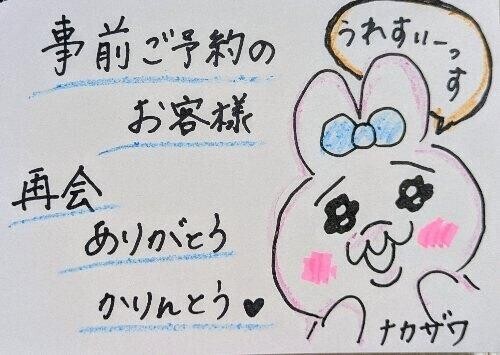 事前ご予約の
お客様
再会
ありがとう
かりんとう♥
うれすぃーっす
ナカザワ